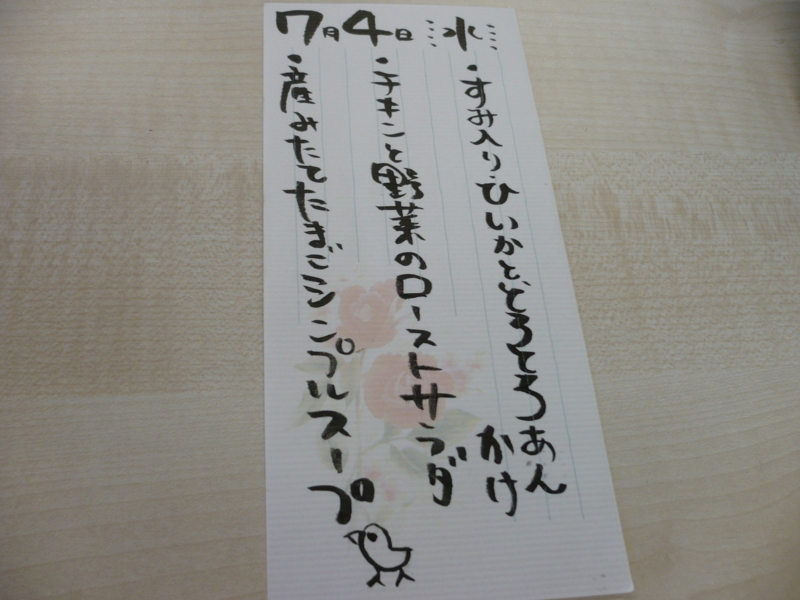 7月4日 水
・すみ入り・ひいかとどろとろあん
かけ
・チキンと野菜のローストサラダ
・産みたてたまごシンプルスープ